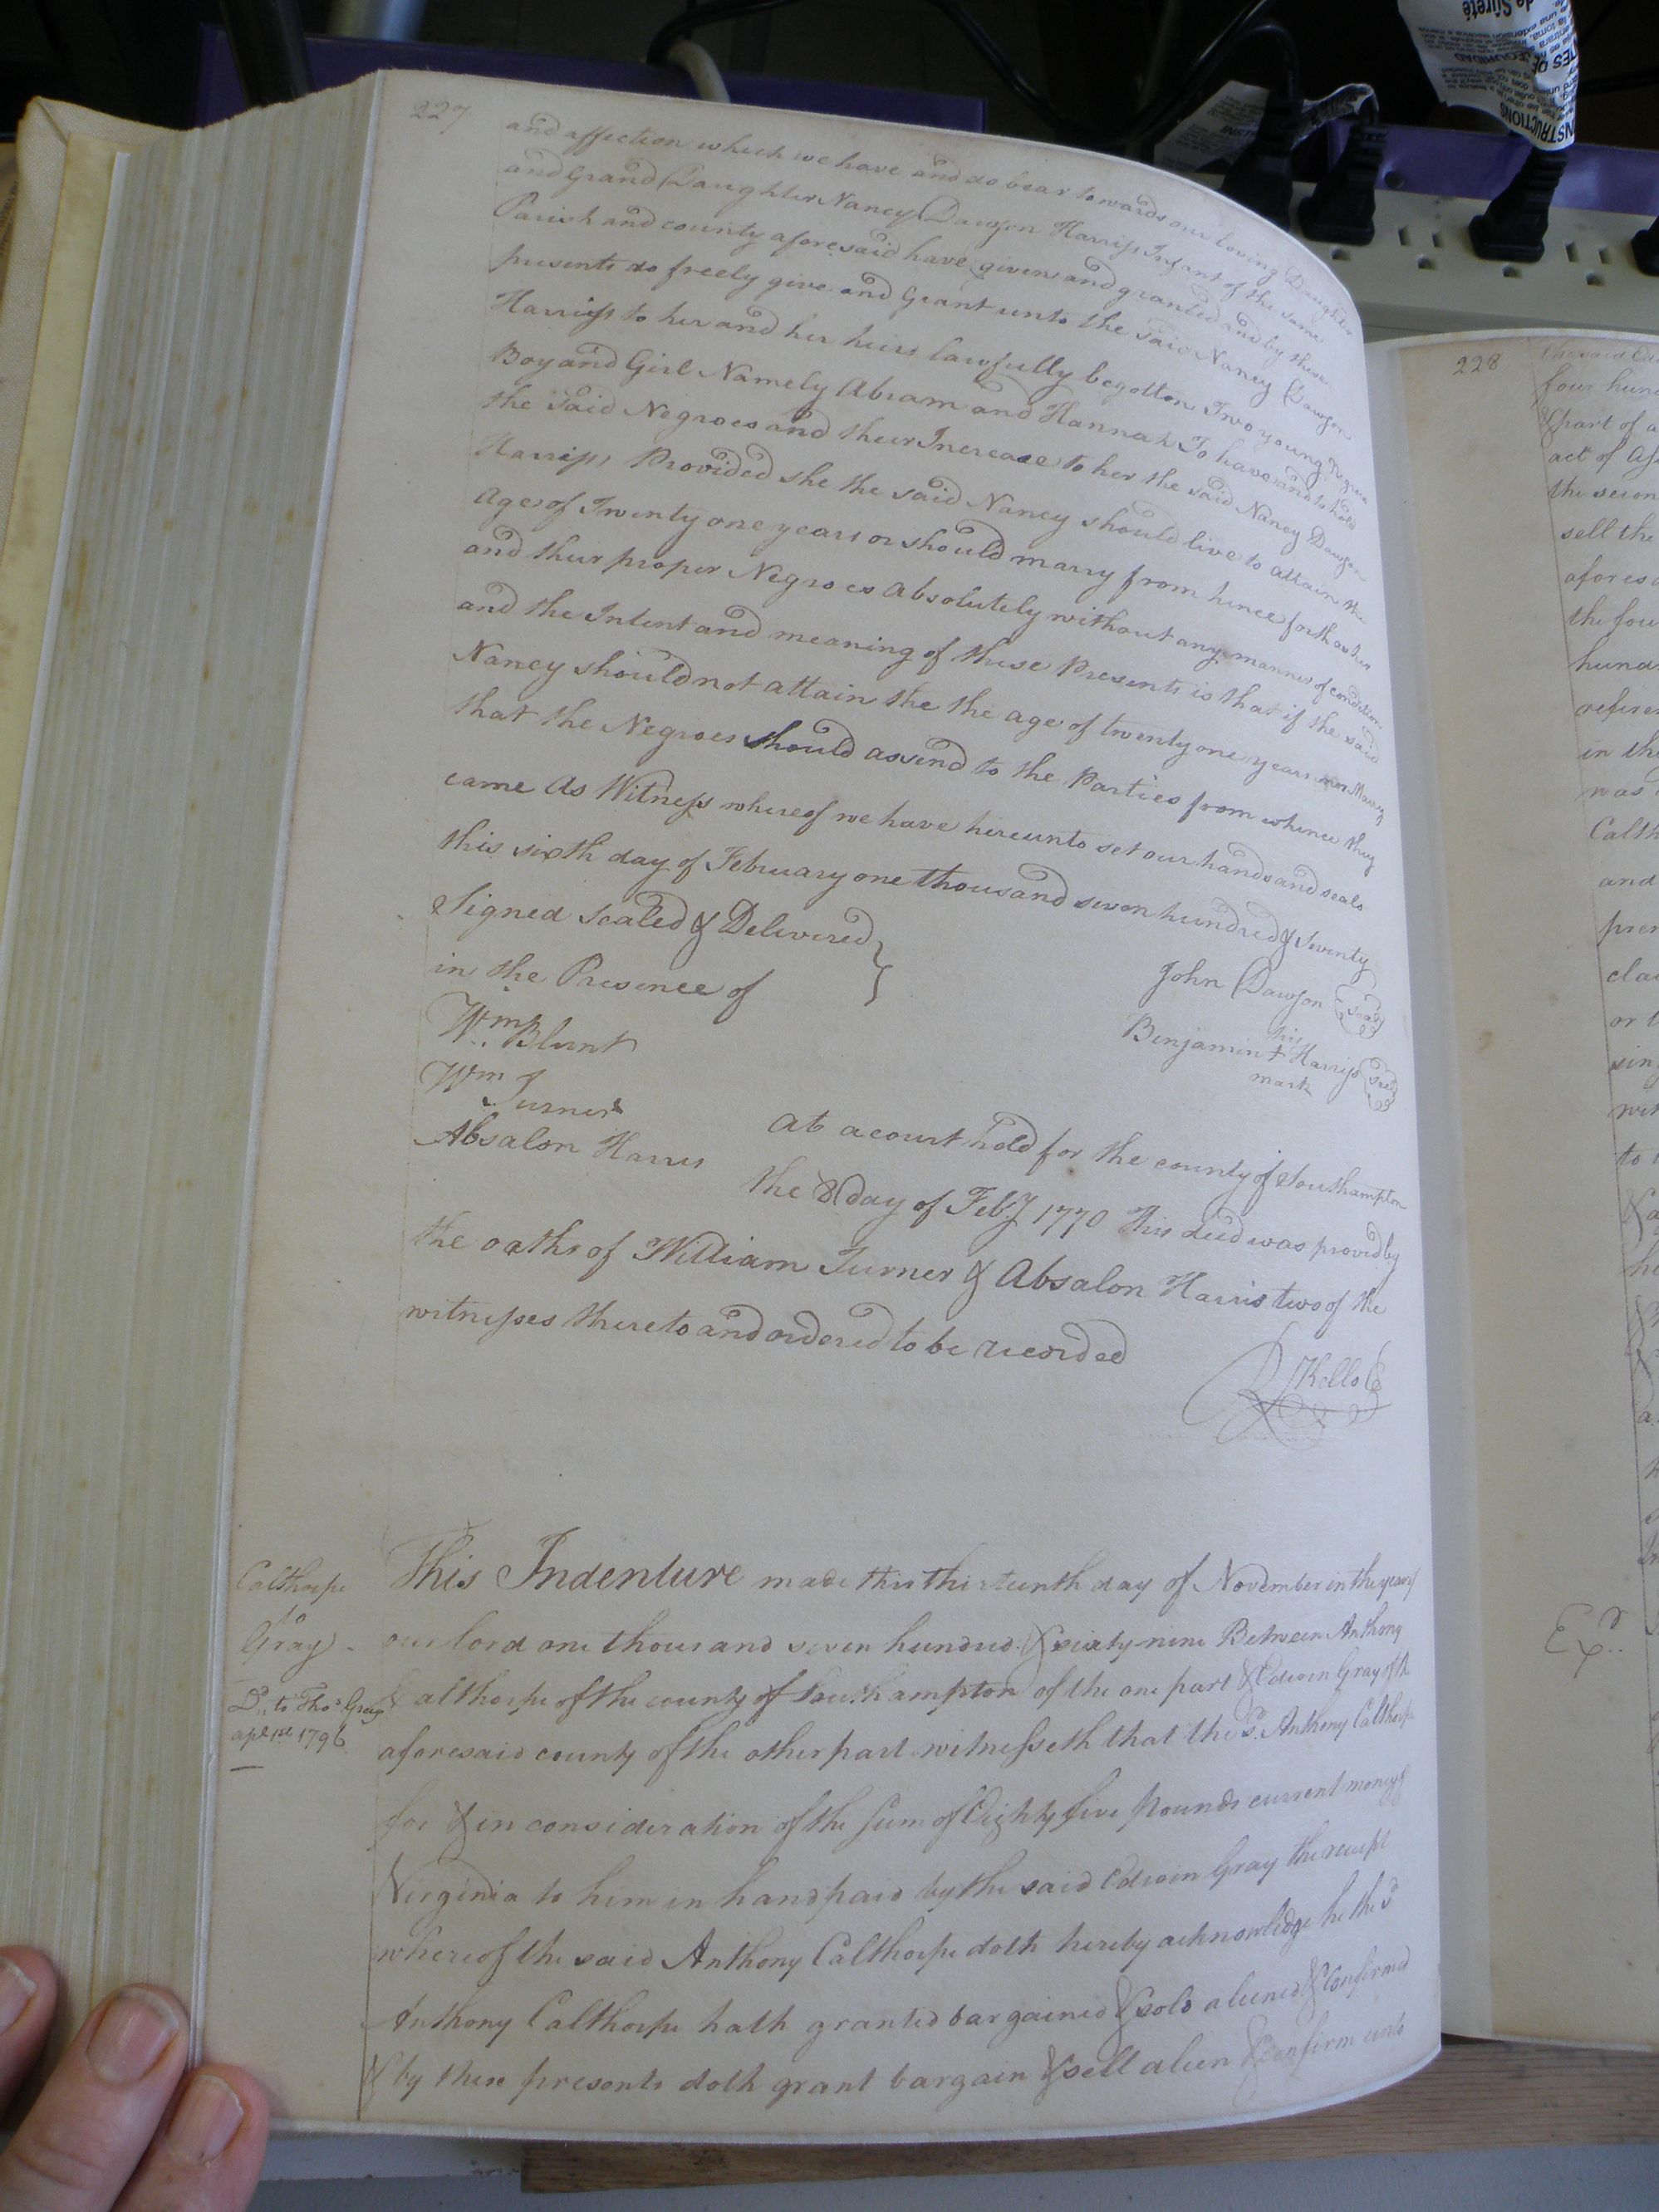 227
and affection which we have and do bear towards our loving Daughter
and Grand Daughter Nancy Dawson Harriss Infant of the same
Parish and county aforesaid have given and granted and by these
presents do freely give and Grant unto the said Nancy Dawson
Harriss to her and her heirs lawfully begotton Two young Negroes
Boy and Girl Namely Abram and Hannah To have and to hold
the said Negroes and their Increase to her the said Nancy Dawson
Harriss Provided she the said Nancy should live to attain the
Age of Twenty one years or should marry from hence forth as her
and their proper Negroes Absolutely without any manner of condition
and the Intent and meaning of these Presents is that if the said
Nancy should not attain the the age of twenty one years nor Marry
that the Negroes should assend to the Parties from whence they
came As Witness whereof we have hereunto set our hands and seals
this sixth day of February one thousand seven hundred & seventy
Signed Sealed & Delivered
in the Presence of
John Dawson Seal
Wm. Blunt
his
Benjamin + Harriss Seal
mark
Wm Turner
Absalon Harris
At a court held for the county of Southampton
the 8 day of Feby 1770 This deed was proved by
the oaths of William Turner & Absalon Harris two of the
witnesses thereto and ordered to be recorded
R Kello C
Calthorpe
to
Gray
D,, to Thos Gray
apl 1st 1796
This Indenture made this thirteenth day of November in the year of
our lord one thousand seven hundred & sixty nine Between Anthony
Calthorpe of the county of Southampton of the one part & Edwin Gray of the
aforesaid county of the other part witnesseth that the sd. Anthony Calthorpe
for & in consideration of the Sum of Eighty five pounds current money of
Virginia to him in hand paid by the said Edwin Gray the receipt
whereof the said Anthony Calthorpe doth hereby acknowledge he the sd
Anthony Calthorpe hath granted bargained & sold aliened & Confirmed
& by these presents doth grant bargain & sell alien & confirm unto
228
four hun
part of a
act of Ass
the secon
sell the
aforesa
the fou
hund
refere
in the
was
Calth
and
pre
cla
or t
sing
wit
to
Exd..
de Sûreté